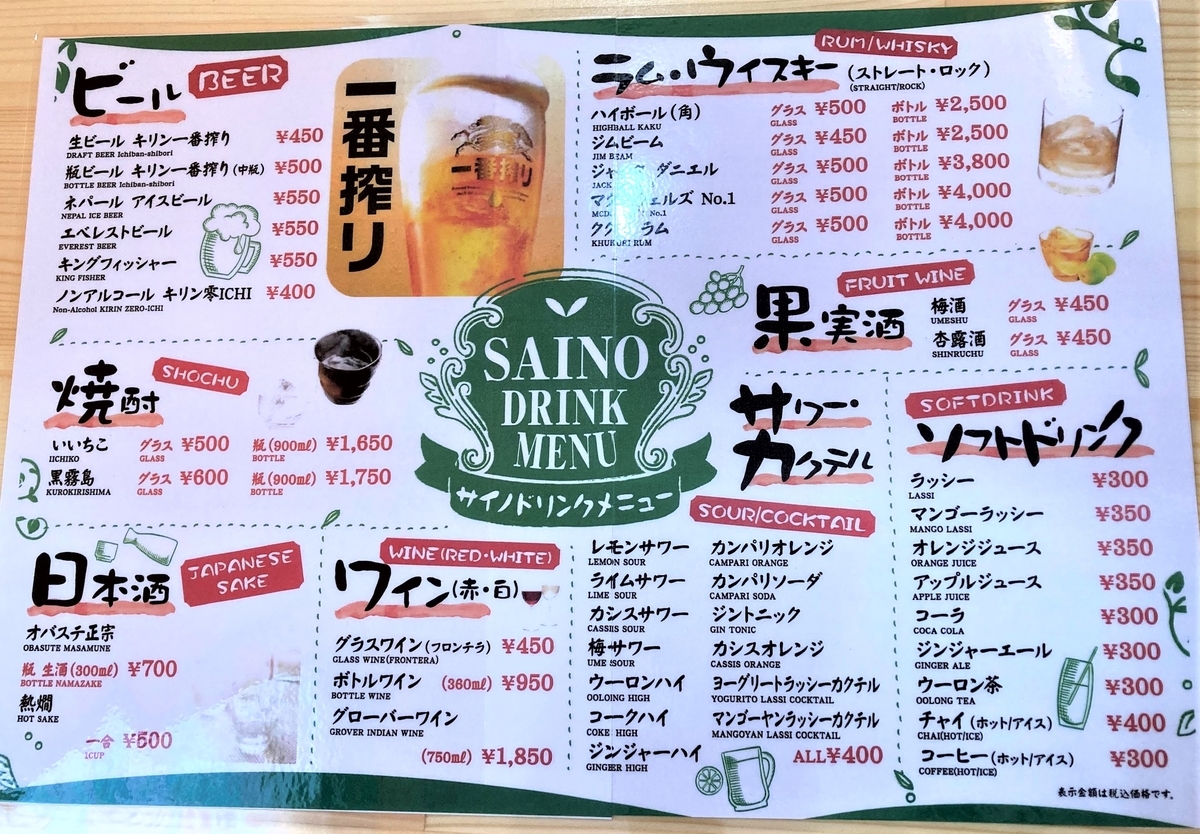 ビール BEER
生ビール キリン一番搾り ¥450
DRAFT BEER Ichiban-shibori
瓶ビール キリン一番搾り(中瓶) ¥500
BOTTLE BEER Ichiban-shibori
ネパール アイスビール ¥550
NEPAL ICE BEER
エベレストビール ¥550
EVEREST BEER
キングフィッシャー ¥550
KING FISHER
ノンアルコール キリン零ICHI ¥400
Non-Alcohol KIRIN ZERO-ICHI
一番搾り
一番搾り
RUM/WHISKY
ラム・ウイスキー (ストレート・ロック)
(STRAIGHT/ROCK)
ハイボール(角) グラス ¥500 ボトル ¥2,500
HIGHBALL KAKU GLASS BOTTLE
ジムビーム グラス ¥450 ボトル ¥2,500
JIM BEAM GLASS BOTTLE
ダニエル グラス ¥500 ボトル ¥3,800
JACK GLASS BOTTLE
ェルズ No.1 グラス ¥500 ボトル ¥4,000
No.1 GLASS BOTTLE
ラム グラス ¥500 ボトル ¥4,000
KHUKURI RUM GLASS BOTTLE
FRUIT WINE
果実酒
梅酒 グラス ¥450
UMESHU GLASS
杏露酒 グラス ¥450
SHINRUCHU GLASS
焼酎 SHOCHU
いいちこ グラス ¥500 瓶(900ml) ¥1,650
IICHIKO GLASS BOTTLE
黒霧島 グラス ¥600 瓶(900ml) ¥1,750
KUROKIRISHIMA GLASS BOTTLE
SAINO
DRINK
MENU
サイノドリンクメニュー
日本酒 JAPANESE
SAKE
オバステ正宗
OBASUTE MASAMUNE
瓶 生酒(300ml) ¥700
BOTTLE NAMAZAKE
熱燗
HOT SAKE
一合 ¥500
1CUP
WINE(RED・WHITE)
ワイン(赤・白)
グラスワイン(フロンテラ) ¥450
GLASS WINE(FRONTERA)
ボトルワイン (360ml) ¥950
BOTTLE WINE
グローバーワイン
GROVER INDIAN WINE
(750ml) ¥1,850
サワー・
カクテル
SOUR/COCKTAIL
レモンサワー
LEMON SOUR
ライムサワー
LIME SOUR
カシスサワー
CASSIS SOUR
梅サワー
UME SOUR
ウーロンハイ
OOLONG HIGH
コークハイ
COKE HIGH
ジンジャーハイ
GINGER HIGH
カンパリオレンジ
CAMPARI ORANGE
カンパリソーダ
CAMPARI SODA
ジントニック
GIN TONIC
カシスオレンジ
CASSIS ORANGE
ヨーグリートラッシーカクテル
YOGURITO LASSI COCKTAIL
マンゴーヤンラッシーカクテル
MANGOYAN LASSI COCKTAIL
ALL¥400
SOFTDRINK
ソフトドリンク
ラッシー ¥300
LASSI
マンゴーラッシー ¥350
MANGO LASSI
オレンジジュース ¥350
ORANGE JUICE
アップルジュース ¥350
APPLE JUICE
コーラ ¥300
COCA COLA
ジンジャーエール ¥300
GINGER ALE
ウーロン茶 ¥300
OOLONG TEA
チャイ(ホット/アイス) ¥400
CHAI(HOT/ICE)
コーヒー(ホット/アイス) ¥300
COFFEE(HOT/ICE)
表示金額は税込価格です。